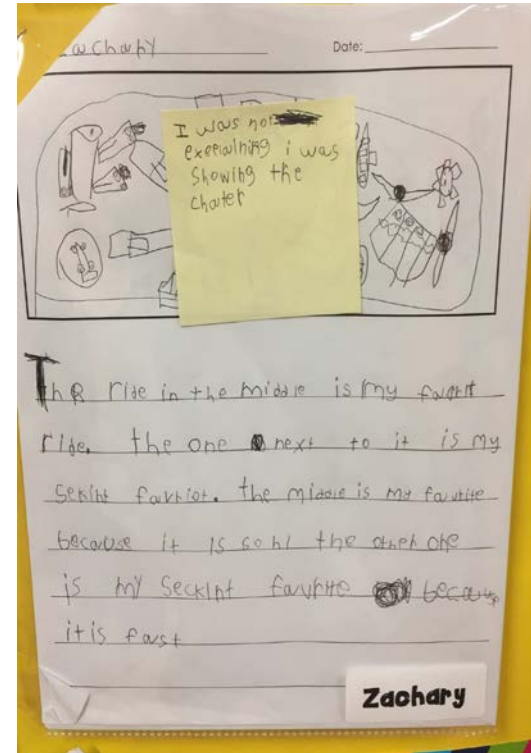 Zachary Date:
I was not
exeplaining i was
Showing the
chater
The ride in the middle is my favorit
ride. the one next to it is my
Sekint favriot. the middle is my favurite
because it is so hi the other one
is my Seckint favurite because
it is fast
Zachary